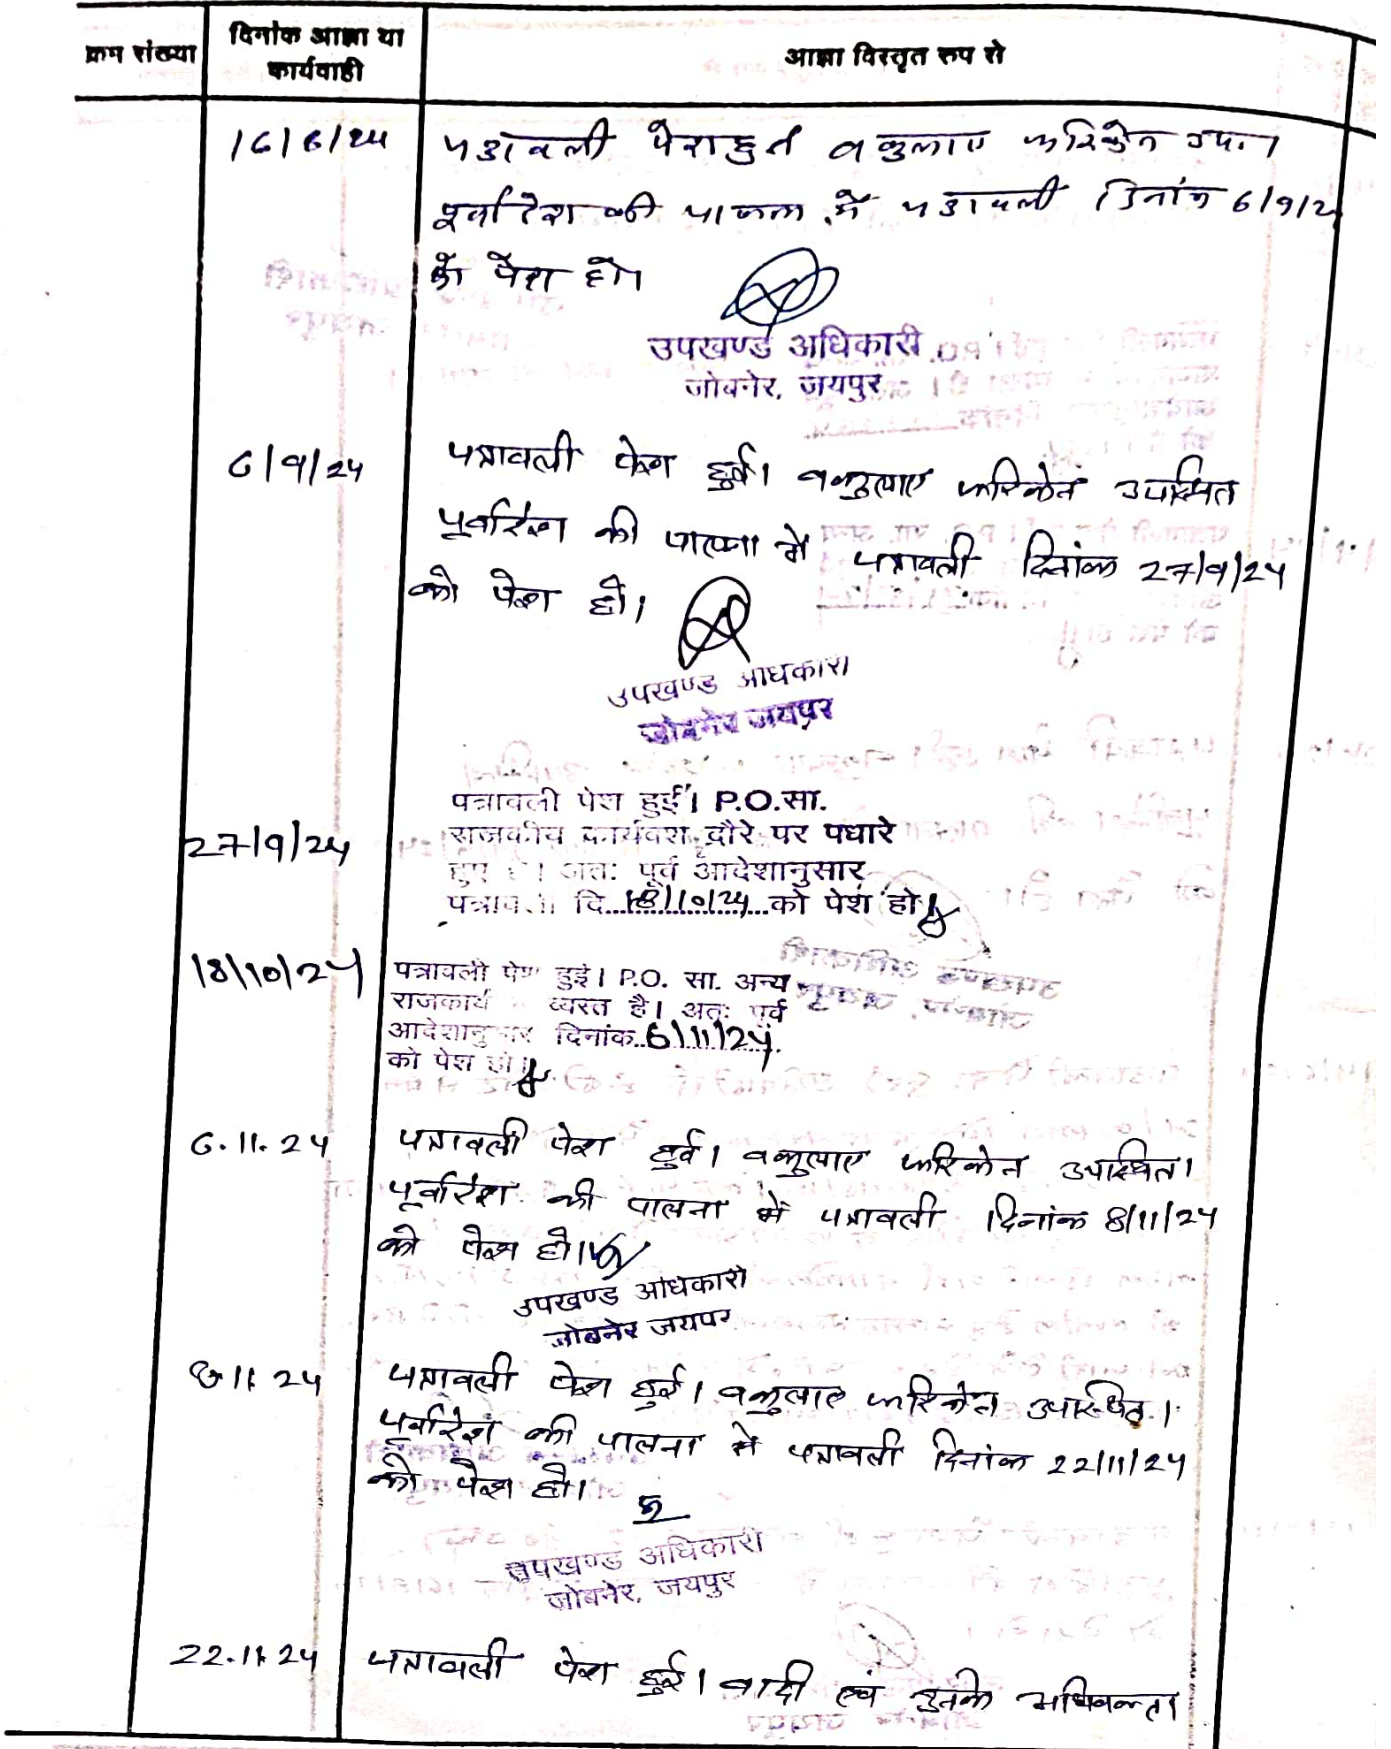 क्रम संख्या
दिनांक आज्ञा या
कार्यवाही
आज्ञा विस्तृत रूप से
पत्रावली पेश हुई वकुलाए फरिकेन उप।
पूर्वादेश की पालना में पत्रावली दिनांक 6/9/2
को पेश हो।
उपखण्ड अधिकारी
जोबनेर, जयपुर
6/9/24
पत्रावली पेश हुई। वकुलाए फरिकेन उपस्थित
पूर्वादेश की पालना में पत्रावली दिनांक 27/9/24
को पेश हो।
उपखण्ड अधिकारी
जोबनेर जयपुर
27/9/24
पत्रावली पेश हुई। P.O.सा.
राजकीय कार्यवश दौरे पर पधारे
हुए है। अतः पूर्व आदेशानुसार
पत्रावली दि..18/10/24..को पेश हो
18/10/24
पत्रावली पेश हुई। P.O. सा. अन्य
राजकार्य व्यस्त है। अतः पूर्व
आदेशानुसार दिनांक..6/11/24.
को पेश हो।
6.11.24
पत्रावली पेश हुई। वकुलाए फरिकेन उपस्थित।
पूर्वादेश की पालना में पत्रावली दिनांक 8/11/24
को पेश हो।
उपखण्ड अधिकारी
जोबनेर जयपुर
8.11.24
पत्रावली पेश हुई। वकुलाए फरिकेन उपस्थित।
पूर्वादेश की पालना में पत्रावली दिनांक 22/11/24
को पेश हो।
उपखण्ड अधिकारी
जोबनेर, जयपुर
22.11.24
पत्रावली पेश हुई। वादी एवं उनके अधिवक्ता